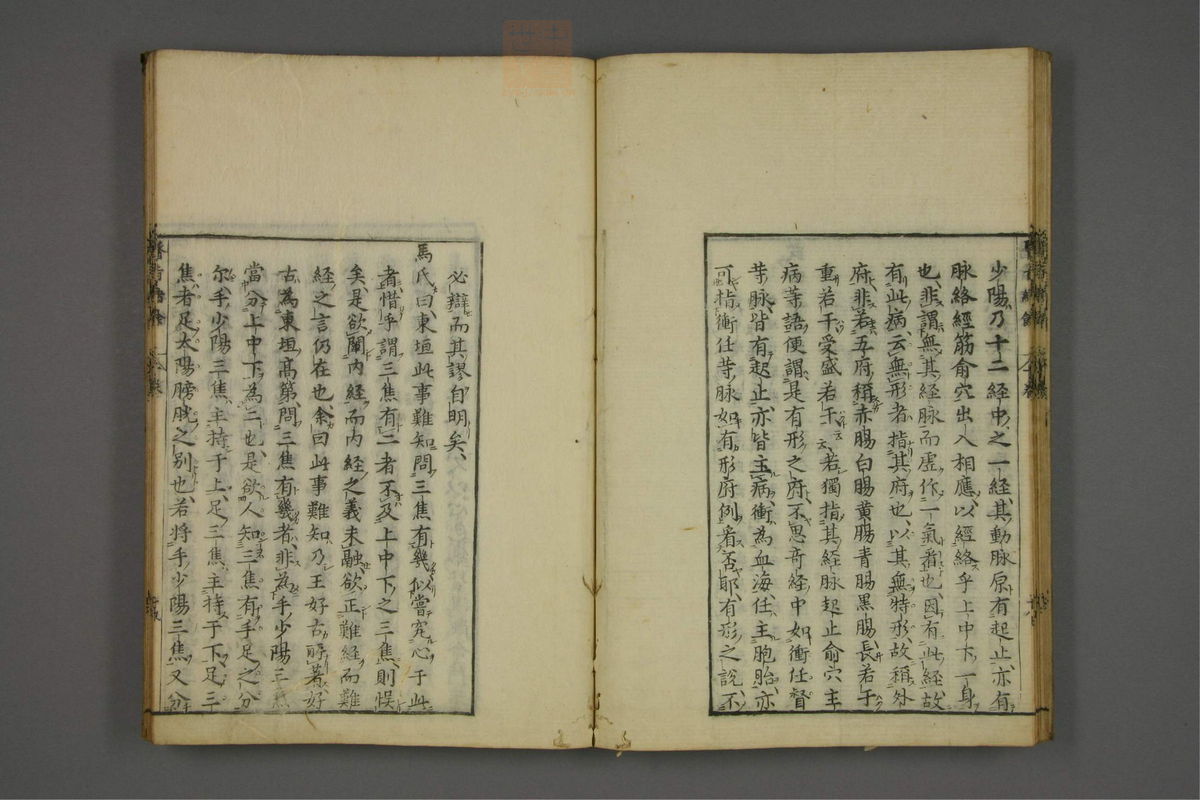 少陽乃十二經中之一經其動脉原有起止亦有
脉絡經筋俞穴出入相應以經絡乎上中下一身
也非謂無其經脉而虛作一氣看也因有此經故
有此病云無形者指其府也以其無特形故稱外
府非若五府稱赤腸白腸黄腸青腸黒腸長若干
重若干受盛若干云若獨指其經脉起止俞穴主
病䓁語便謂是有形之府不思竒經中如衝任督
䓁脉皆有起止亦皆主病衝為血海任主胞胎亦
可指衝任䓁脉如有形府例看否耶有形之說不
必辯而其謬自明矣
馬氏曰東垣此事難知問三焦有幾似嘗究心于此
者惜乎謂三焦有二者不及上中下之三焦則悞
矣是欲闡内經而内經之義未融欲正難經而難
經之言仍在也余曰此事難知乃王好古所著好
古為東垣高第問三焦有幾者非為手少陽三焦
當分上中下為三也是欲人知三焦有手足之分
尔手少陽三焦主持于上足三焦主持于下足三
焦者足太陽膀胱之別也若将手少陽三焦又分